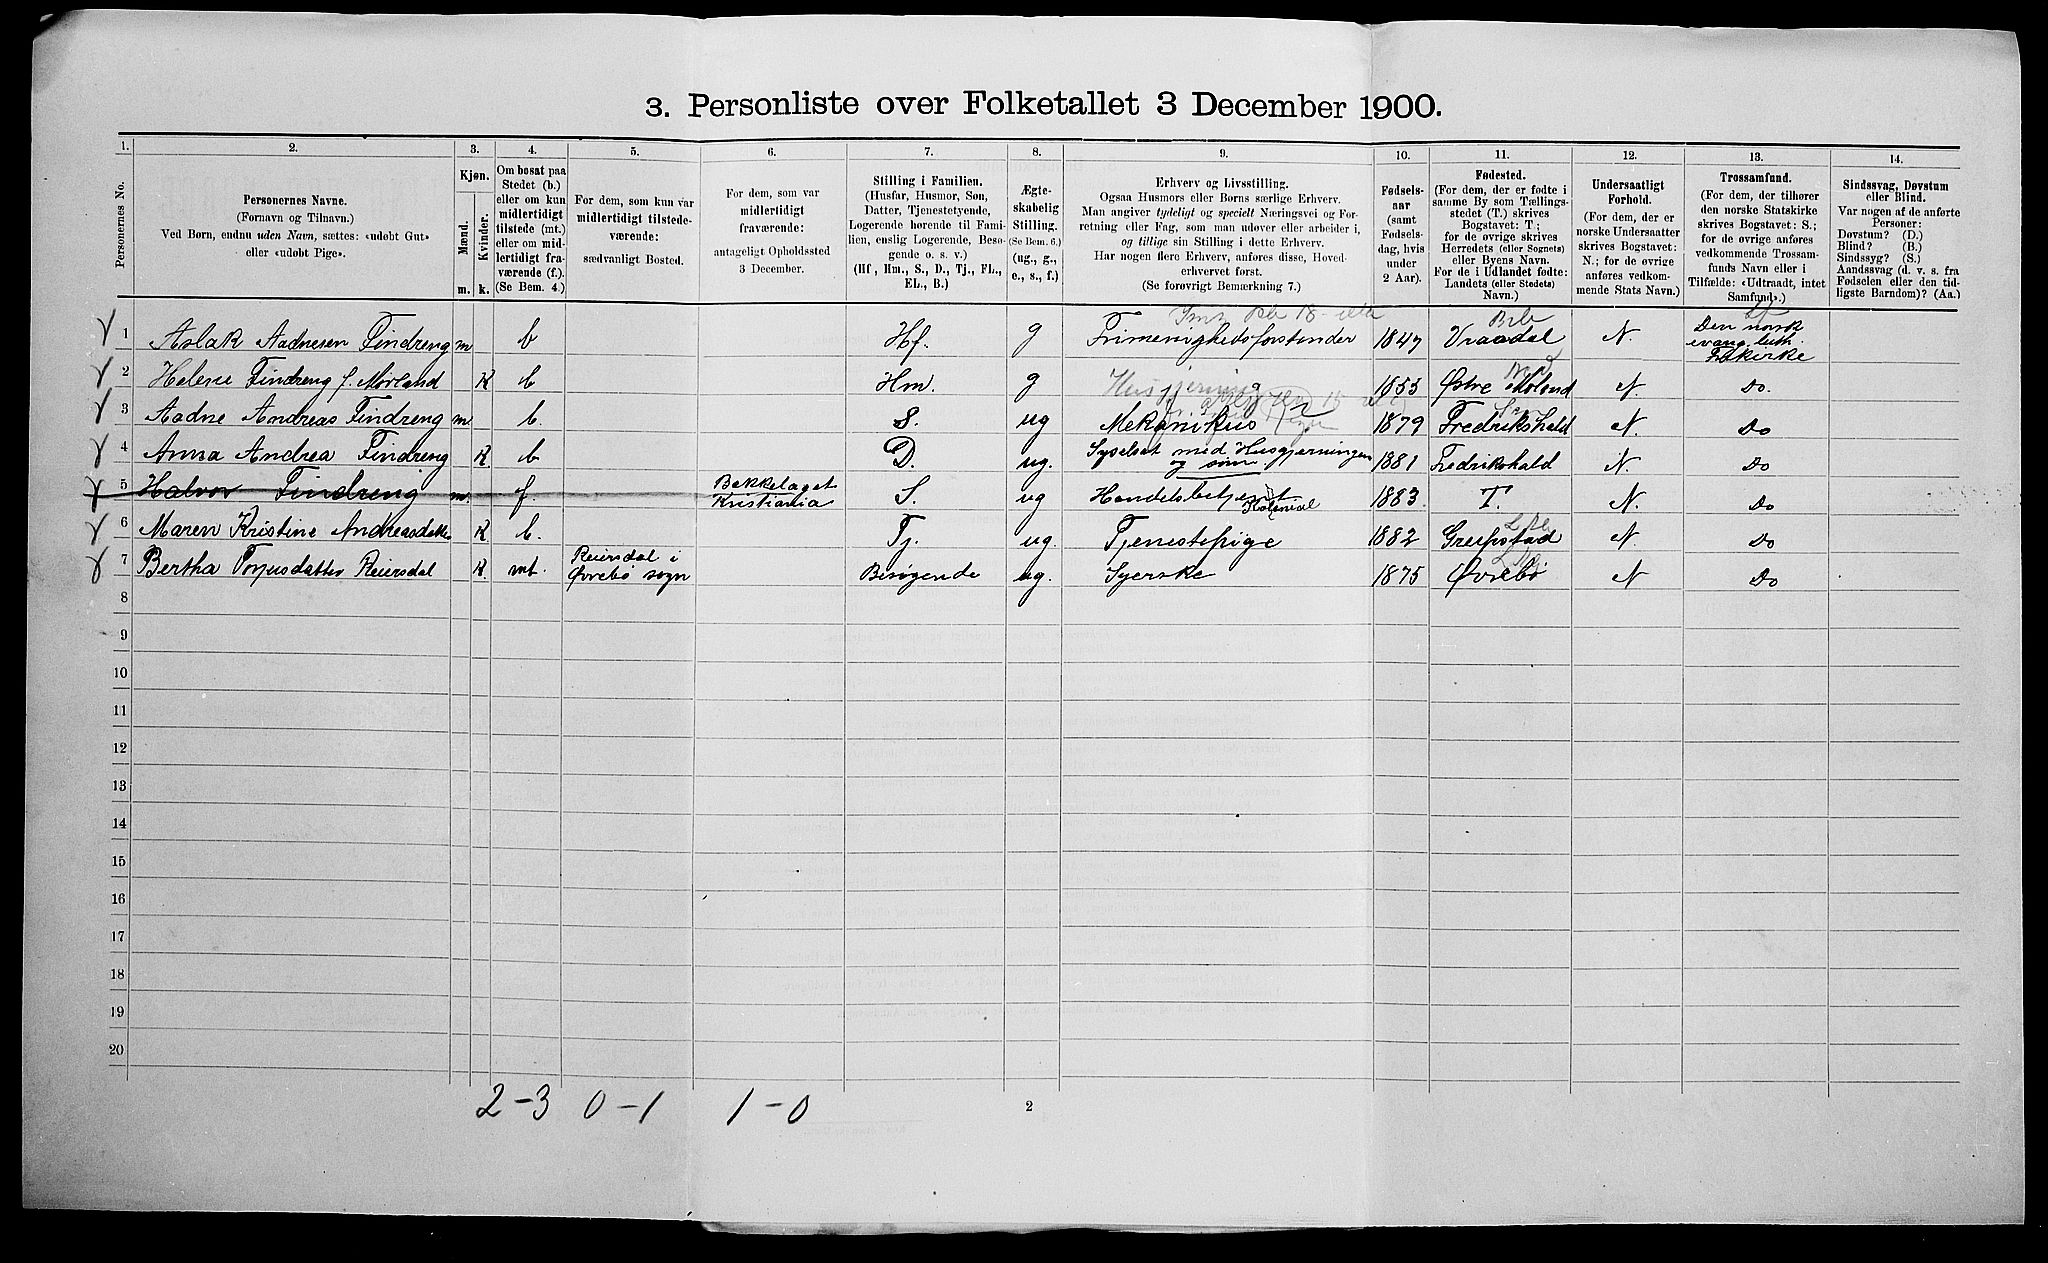 3. Personliste over Folketallet 3 December 1900.
1. 2. 3. 4. 5. 6. 7. 8. 9. 10. 11. 12. 13. 14.
Personernes No.
Personernes Navne.
(Fornavn og Tilnavn.)
Ved Børn, endnu uden Navn, sættes: «udøbt Gut»
eller «udøbt Pige».
Kjøn.
Mænd.
Kvinder.
m. k.
Om bosat paa
Stedet (b.)
eller om kun
midlertidigt
tilstede (mt.)
eller om mid-
lertidigt fra-
værende (f.).
(Se Bem. 4.)
For dem, som kun var
midlertidigt tilstede-
værende:
sædvanligt Bosted.
For dem, som var
midlertidigt
fraværende:
antageligt Opholdssted
3 December.
Stilling i Familien.
(Husfar, Husmor, Søn,
Datter, Tjenestetyende,
Logerende hørende til Fami-
lien, enslig Logerende, Besø-
gende o. s. v.)
(Hf, Hm., S., D., Tj., FL.,
EL., B.)
Ægte-
skabelig
Stilling.
(Se Bem. 6.)
(ug., g.,
e., s., f.)
Erhverv og Livsstilling.
Ogsaa Husmors eller Børns særlige Erhverv.
Man angiver tydeligt og specielt Næringsvei og For-
retning eller Fag, som man udøver eller arbeider i,
og tillige sin Stilling i dette Erhverv.
Har nogen flere Erhverv, anføres disse, Hoved-
erhvervet først.
(Se forøvrigt Bemærkning 7.)
Fødsels-
aar
(samt
Fødsels-
dag, hvis
under
2 Aar).
Fødested.
(For dem, der er fødte i
samme By som Tællings-
stedet (T.) skrives
Bogstavet: T.;
for de øvrige skrives
Herredets (eller Sognets)
eller Byens Navn.
For de i Udlandet fødte:
Landets (eller Stedets)
Navn.)
Undersaatligt
Forhold.
(For dem, der er
norske Undersaatter
skrives Bogstavet:
N.; for de øvrige
anføres vedkom-
mende Stats Navn.)
Trossamfund.
(For dem, der tilhører
den norske Statskirke
skrives Bogstavet: S.;
for de øvrige anføres
vedkommende Trossam-
funds Navn eller i
Tilfælde: «Udtraadt, intet
Samfund».)
Sindssvag, Døvstum
eller Blind.
Var nogen af de anførte
Personer:
Døvstum? (D.)
Blind? (B.)
Sindssyg? (S.)
Aandssvag (d. v. s. fra
Fødselen eller den tid-
ligste Barndom)? (Aa.)
1 Aslak Aadnesen Findreng m b Hf. g Frimenighedsforstander 1847 Vraadal N. Den norsk
evang. luth.
Frikirke
2 Helene Findreng f. Mørland K b Hm. g Husgjerning 1855 Østre Moland N. Do.
3 Aadne Andreas Findreng m b. S. ug Mekanikus 1879 Fredrikshald N. Do
4 Anna Andrea Findreng K b D. ug. Sysselsat med Husgjerningen
og søm 1881 Fredrikshald N. Do
5 Halvor Findreng m. f. Bekkelaget
Kristiania S. ug Handelsbetjent
Kolonial 1883 T. N. Do
6 Maren Kristine Andreasdatter K b. Tj. ug. Tjenestepige 1882 Greipstad N. Do
7 Bertha Torjusdatter Reiersdal K mt. Reiersdal i
Øvrebø sogn Besøgende ug. Syerske 1875 Øvrebø N Do
8
9
10
11
12
13
14
15
16
17
18
19
20
2-3 0-1 1-0
2